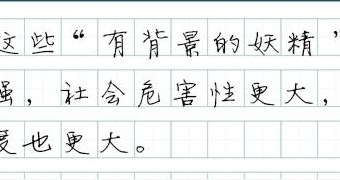 这些“有背景的妖精”
强，社会危害性更大，
度也更大。